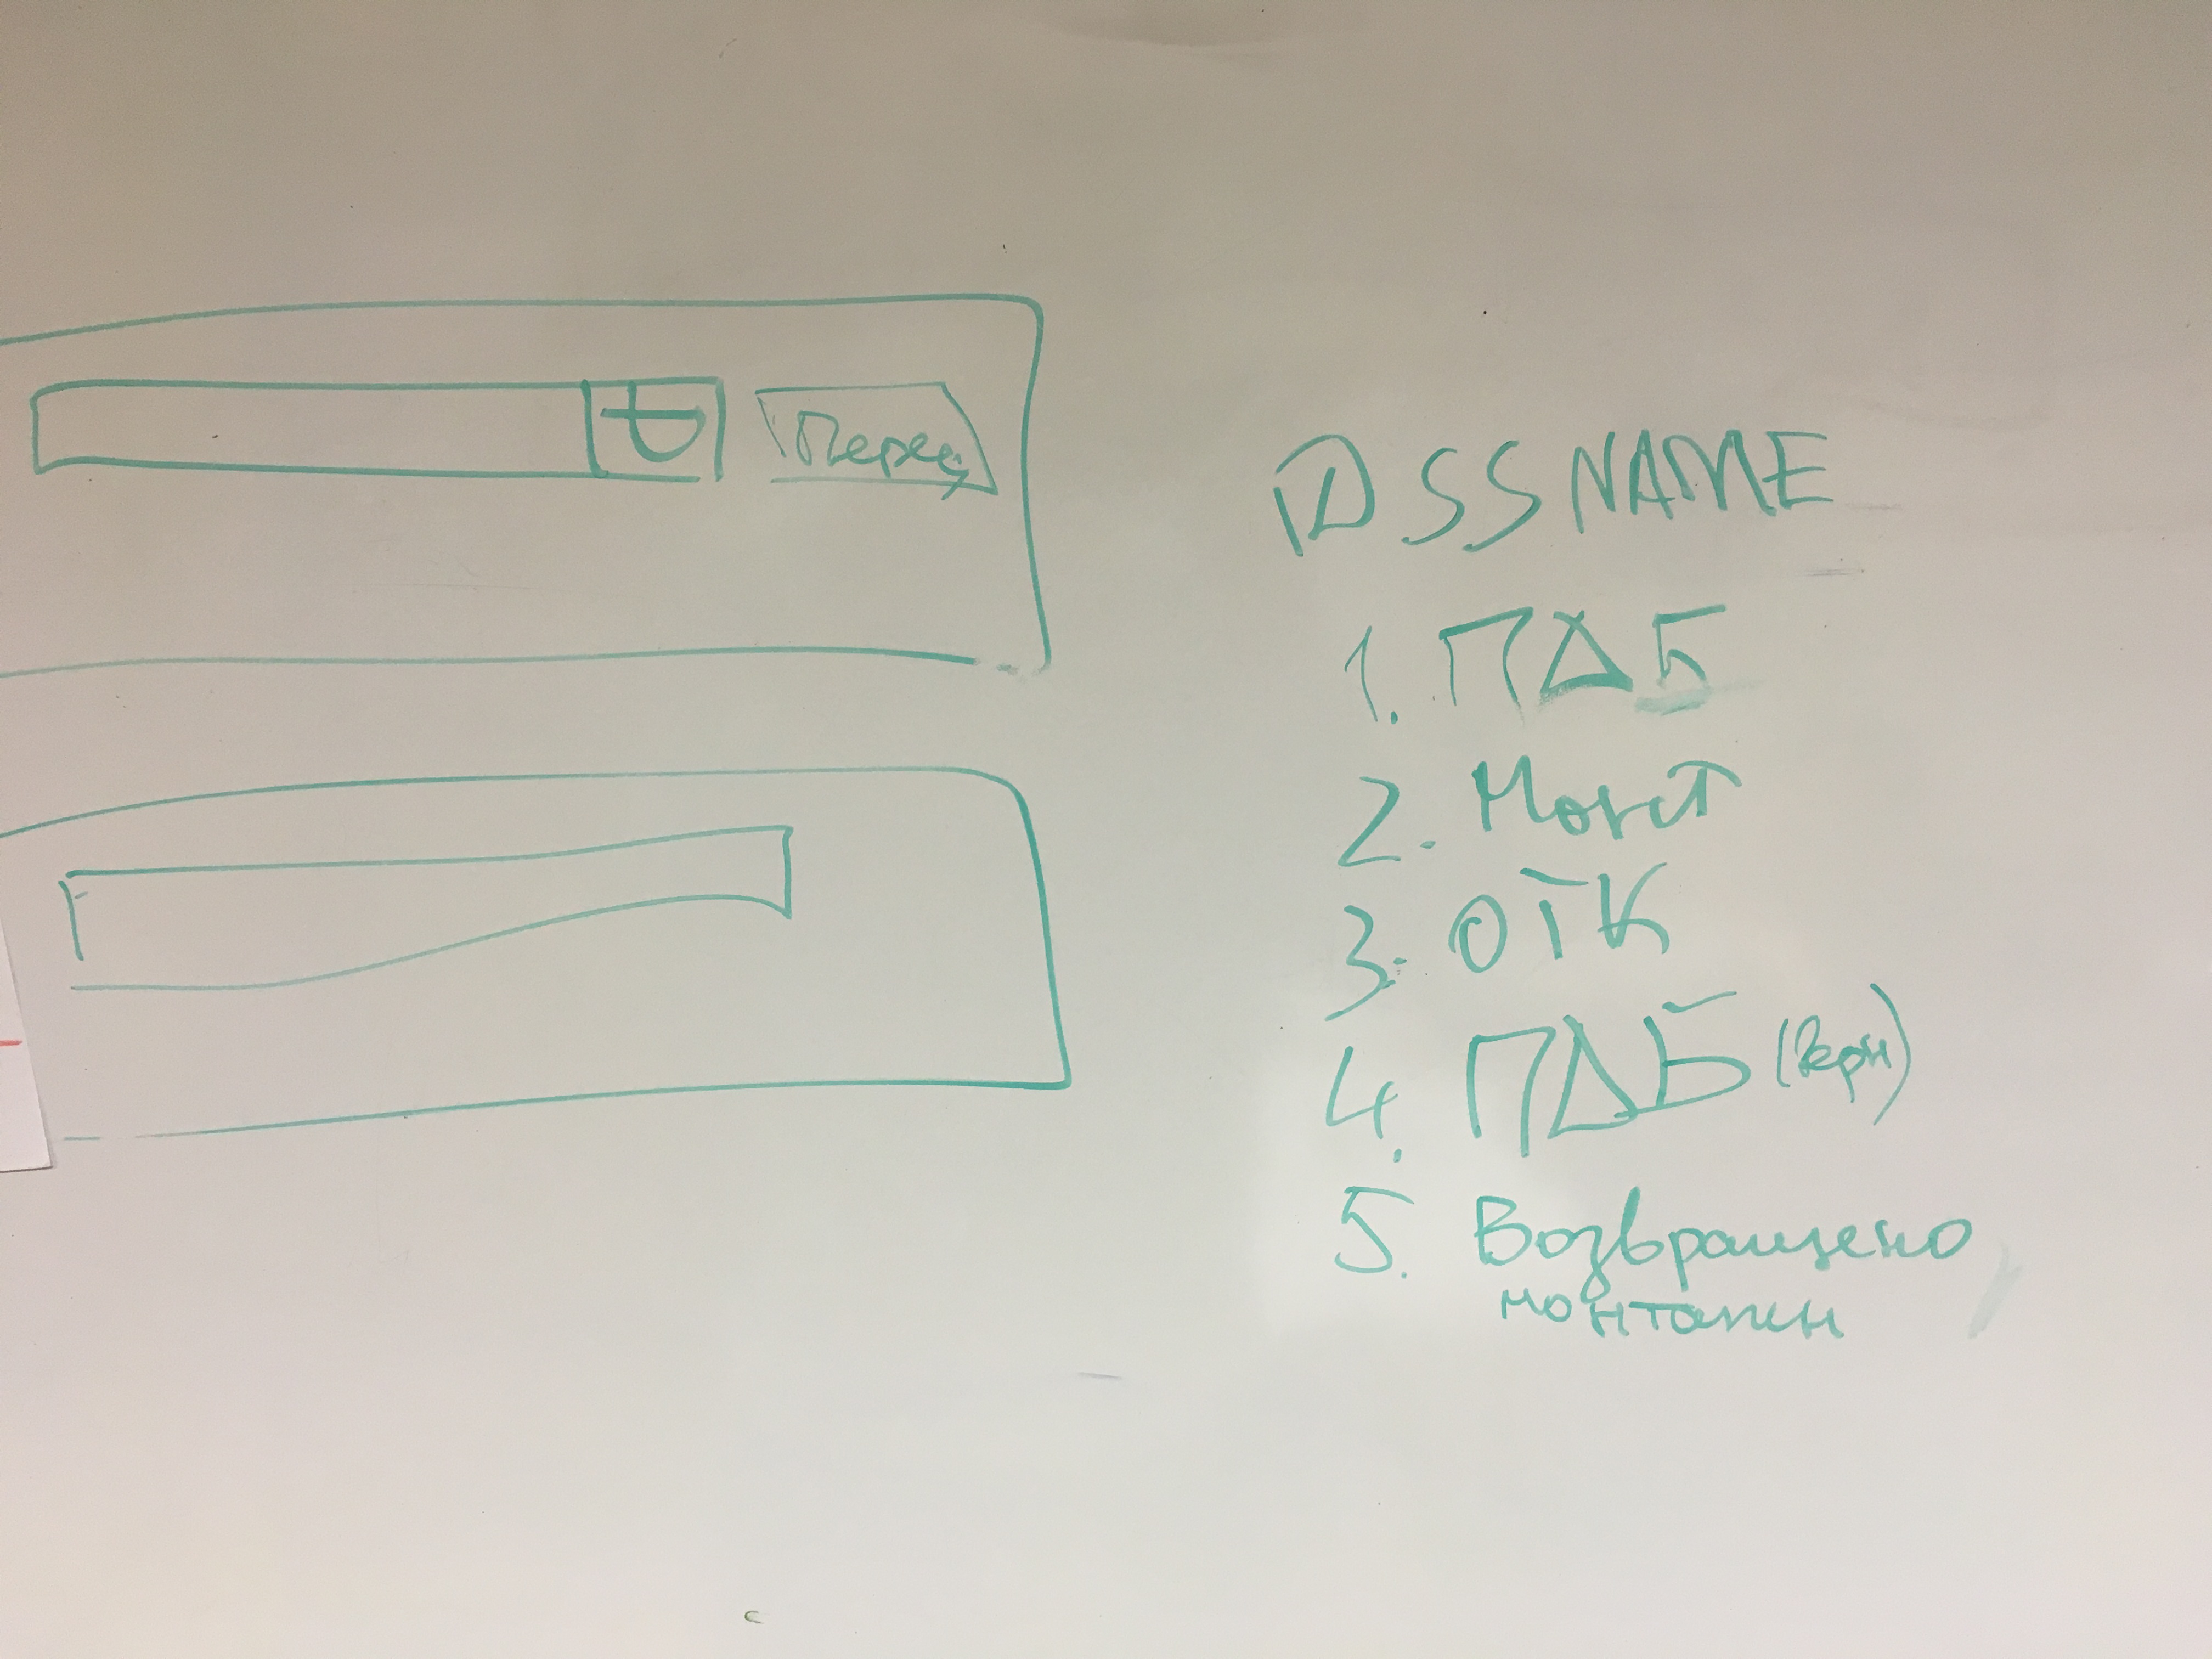 Перец
SSNAME
1. ПДБ
2. Монт
3. ОТК
4. ПДБ
5. Возвращено
монтажн